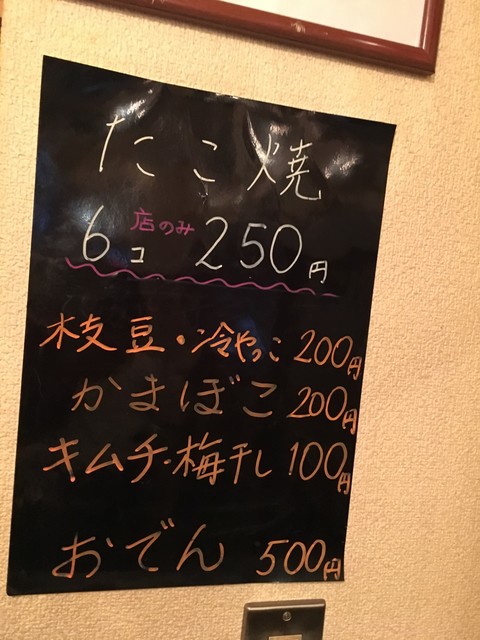 たこ焼
6コ 店のみ 250円
枝豆・冷やっこ 200円
かまぼこ 200円
キムチ・梅干し 100円
おでん 500円